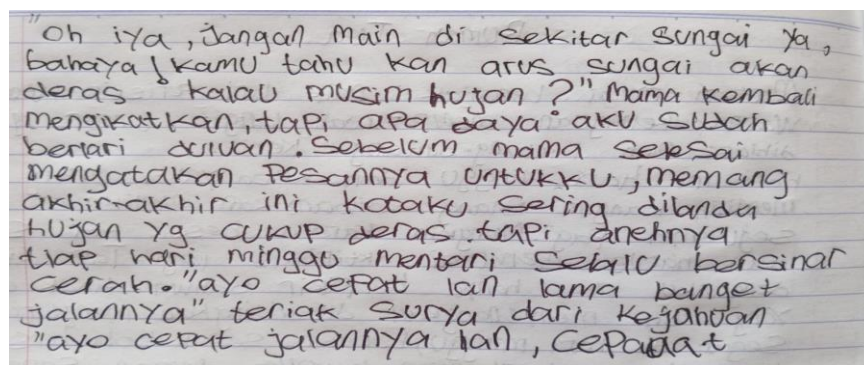 "Oh iya, jangan main di sekitar sungai ya,
bahaya! kamu tahu kan arus sungai akan
deras kalau musim hujan?" Mama kembali
mengikatkan, tapi apa daya aku sudah
berlari duluan. Sebelum mama selesai
mengatakan pesannya untukku, memang
akhir-akhir ini kotaku sering dilanda
hujan yg cukup deras. tapi anehnya
tiap hari minggu mentari selalu bersinar
cerah. "ayo cepat ian lama banget
jalannya" teriak Surya dari kejahuan
"ayo cepat jalannya ian,